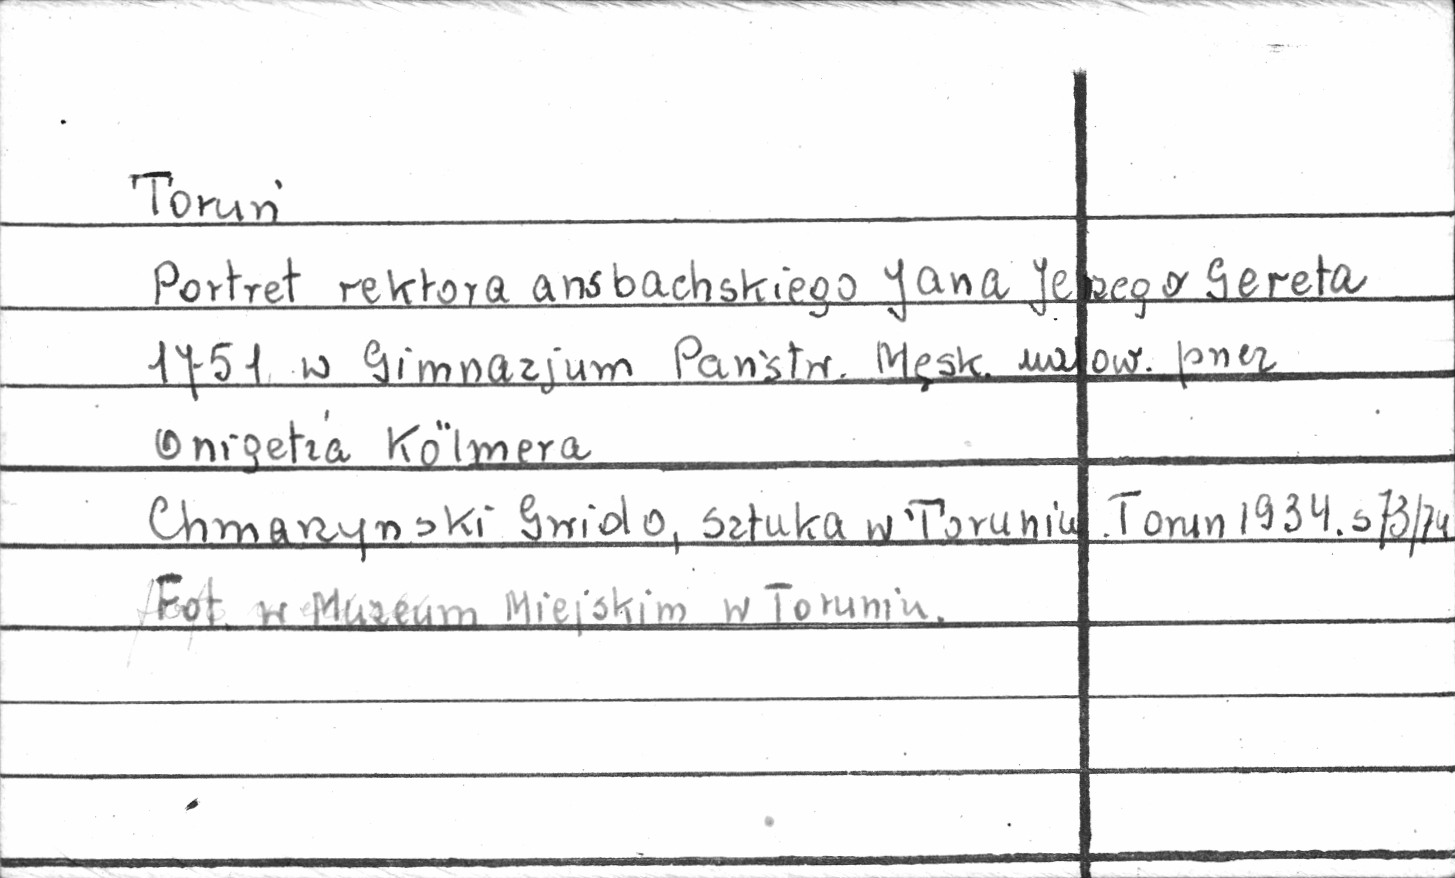 Toruń
Portret rektora ansbachskiego Jana Jerzego Gereta
1751 w Gimnazjum Państw. Męsk. malow. przez
Onigetza Kölmera
Chmarzynski Gwido, Sztuka w Toruniu. Toruń 1934. s 73/74
Fot. w Muzeum Miejskim w Toruniu.